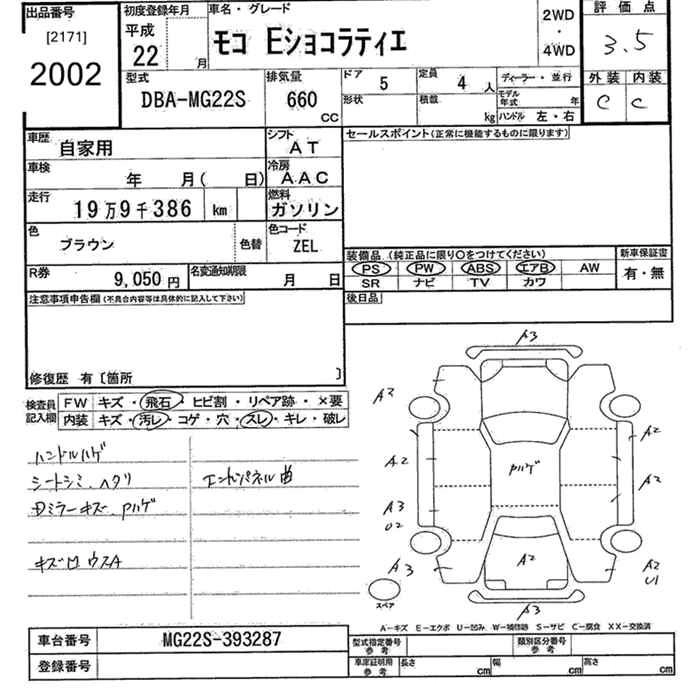 出品番号
[2171]
2002
初度登録年月
平成
22 月
車名・グレード
モコ Eショコラティエ
2WD
・
4WD
評価点
3.5
外装 内装
C C
型式
DBA-MG22S
排気量
660
CC
ドア 5
定員 4 人
形状
積載 kg
ディーラー・並行
モデル年式 年
ハンドル 左・右
車歴
自家用
シフト
AT
セールスポイント(正常に機能するものに限ります)
車検
年 月( 日)
冷房
AAC
走行
19万9千386 km
燃料
ガソリン
色
ブラウン
色替
色コード
ZEL
装備品 (純正品に限り○をつけてください)
新車保証書
PS PW ABS エアB AW
有・無
SR ナビ TV カワ
R券
9,050円
名変通知期限
月 日
後日品
注意事項申告欄(不具合内容等は具体的に記入して下さい)
修復歴 有〔箇所 〕
検査員
記入欄
FW キズ・飛石・ヒビ割・リペア跡・×要
内装 キズ・汚レ・コゲ・穴・スレ・キレ・破レ
ハンドルハゲ
シートシミ、ヘタリ
エンドパネル曲
Dミラーキズ Pハゲ
A3
A2
A2
A2
A2
A3
U2
A3
A2
U1
Pハゲ
A2
A3
スペア
A-キズ E-エクボ U-凹み W-補修跡 S-サビ C-腐食 XX-交換済
車台番号
MG22S-393287
登録番号
型式指定番号
参考
類別区分番号
参考
車庫証明用
参考
長さ cm
幅 cm
高さ cm